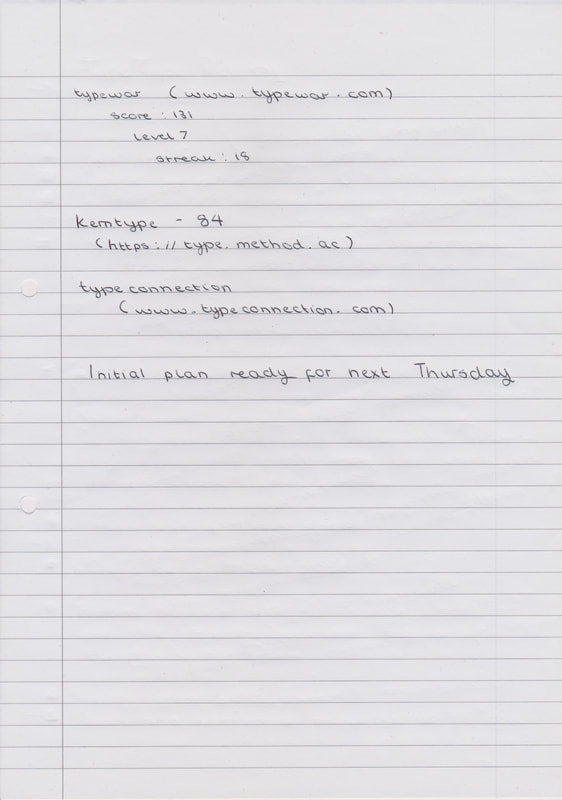 typewar (www.typewar.com)
score : 131
level 7
streak : 18
Kerntype - 84
(https://type.method.ac)
type connection
(www.typeconnection.com)
Initial plan ready for next Thursday